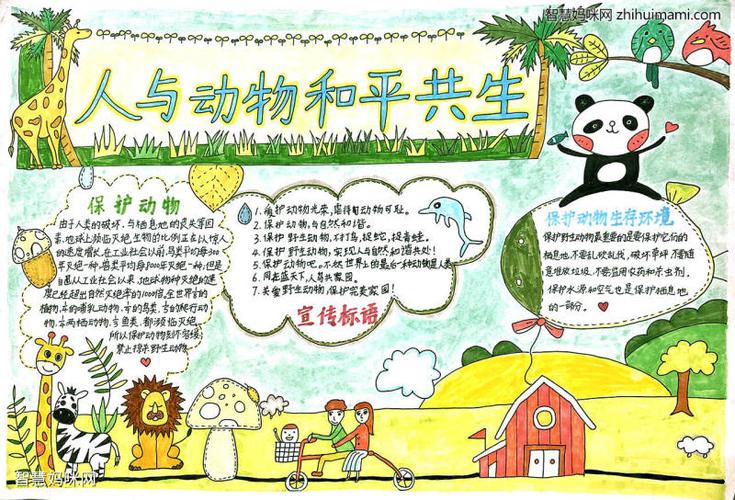 智慧妈咪网 zhihuimami.com
人与动物和平共生
保护动物
由于人类的破坏,与栖息地的丧失等因
素,地球上濒临灭绝生物的比例正在以惊人
的速度增长,在工业社会以前,鸟类平均每300
年灭绝一种,兽类平均每8000年灭绝一种,但是
自从工业社会以来,地球物种灭绝的速
度已经超出自然灭绝率的1000倍,全世界的
植物,的哺乳动物,的鸟类,的爬行动
物,的两栖动物,的鱼类,都濒临灭绝,
所以保护动物刻不容缓,
禁止捕杀野生动物
1.爱护动物光荣,虐待动物可耻。
2.保护动物,与自然和谐。
3.保护野生动物,不打鸟,捉蛇,捉青蛙。
4.保护野生动物,实现人与自然和谐共处!
5.保护动物吧。不然世界上的最后一种动物是人类
6.同在蓝天下,人兽共家园。
7.关爱野生动物,保护完美家园!
宣传标语
保护动物生存环境
保护野生动物最重要的是要保护它们的
栖息地,不要乱砍乱伐,破坏草坪,不要随
意堆放垃圾,不要滥用农药和杀虫剂.
保护水源和空气也是保护栖息地
的一部分。
智慧妈咪网